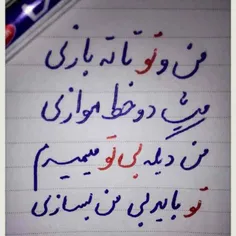 من و تو تا ته بازی
میشیم دو خط موازی
من دیگه بی تو میمیرم
تو باید بی من بسازی